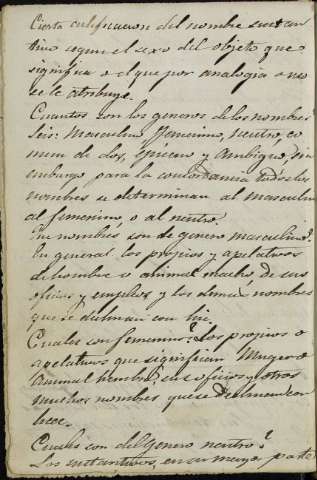 Cierta calificacion del nombre sustan
tivo segun el sexo del objeto que
significa o el que por analogia o uso
se le atribuye.
Cuantos son los generos de los nombres
Seis: Masculino Femenino, neutro, co
mun de dos, Epiceno y Ambiguo, sin
embargo para la concordancia todos los
nombres se determinan al masculino
al femenino, o al neutro.
nombres son de genero masculino?
En general los propios y apelativos
de hombre o animal macho, de sus
oficios y empleos y los demas nombres
que se declinan con hic.
Cuales son femeninos? Los propios o
apelativos que significan Muger o
Animal hembra, sus oficios y otros
muchos nombres que se declinan con
hec.
Cuales son del Genero neutro?
Los sustantivos, en su mayor parte